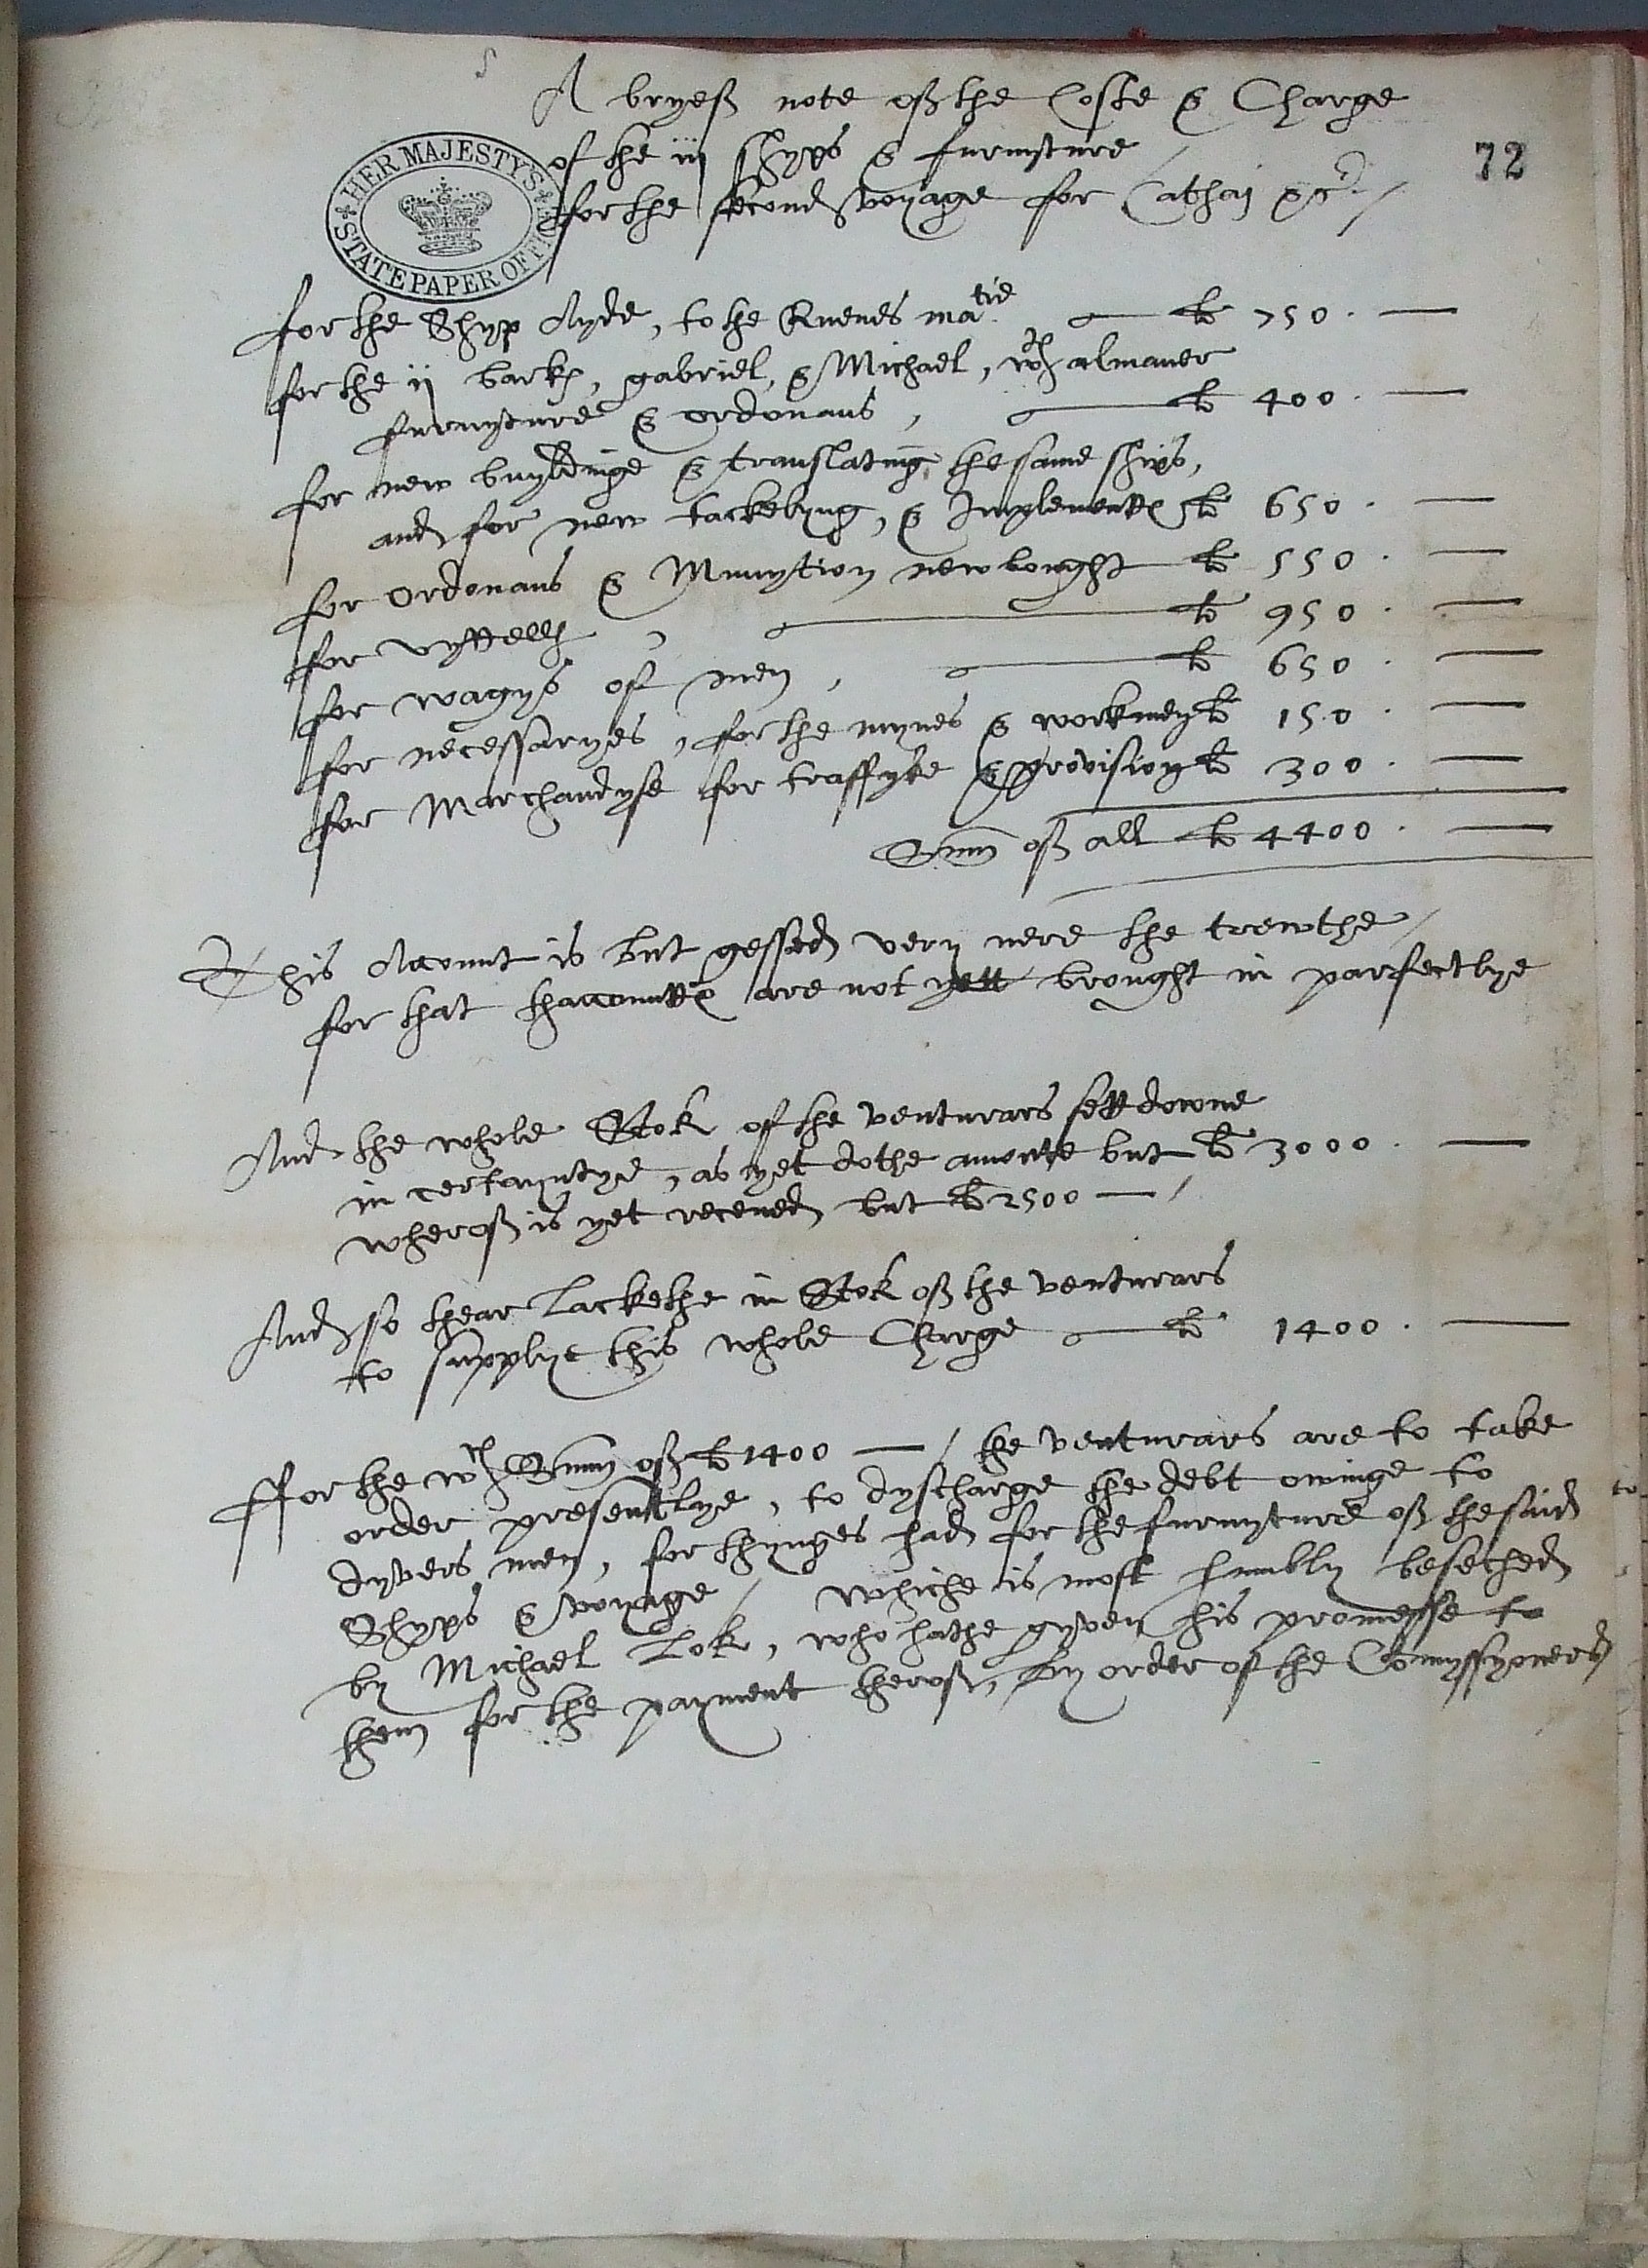 A bryeff note off the Coste & Charge
of the iij shyps & furniture
for the second voyage for Cathai &c.
72
HER MAJESTY'S
STATE PAPER OFFI
for the Shyp Ayde, to the Quenes matie £ 750.
for the ij barks, gabriel, & Michael, wth almaner
furnyture & ordonans, £ 400.
for new buyldinge & translating the same ships,
and for new tackelyng, & Implements £ 650.
for ordonans & Munytion new bought £ 550.
for vyttells, £ 950.
for wagys of men, £ 650.
for necessaryes, for the mynes & workmen £ 150.
for Marchandyse for traffyke & provision £ 300.
Summ off all £ 4400.
This Account is but gessed very nere the trewthe
for that thaccountts are not yett brought in parfectlye
And the whole Stok of the venturars sett downe
in certayntye, as yet dothe amonte but £ 3000.
wheroff is yet receued but £ 2500
And so thear lackethe in Stok off the venturars
to supplye this whole Charge £ 1400.
ffor the wch Summ off £ 1400 the venturars are to take
order presentlye, to dyscharge the debt owinge to
dyvers men, for thynges had for the furnyture off the said
Shyps & voyage / whiche is most humbly beseched
by Michael Lok, who hathe gyven his promesse to
them for the payment theroff, by order of the Comyssyoners